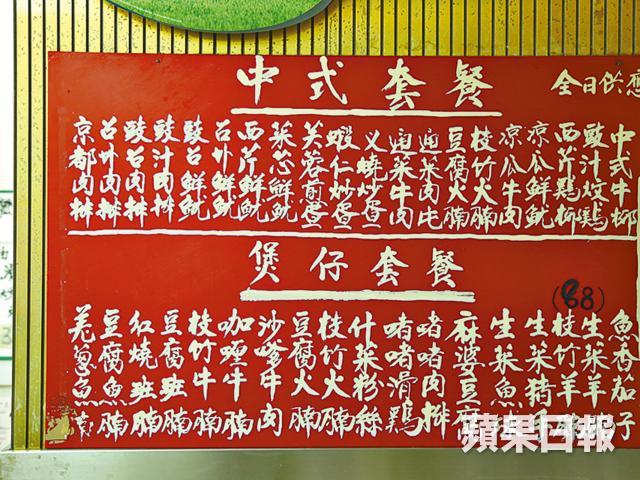 中式套餐
全日供應
中式牛柳
豉汁炆鷄
西芹鷄柳
凉瓜鮮魷
凉瓜牛肉
枝竹火腩
豆腐火腩
通菜肉
通菜牛肉
叉燒炒蛋
蝦仁炒蛋
芙蓉煎蛋
菜芯鮮魷
西芹鮮魷
召外鮮魷
豉召鮮魷
豉汁肉排
豉召肉排
召外肉排
京都肉排
煲仔套餐
(88)
魚香茄子
生菜羊
枝竹羊
生菜猪
生菜魚
麻婆豆腐
啫啫肉排
啫啫滑鷄
什菜粉絲
枝竹火腩
豆腐火腩
沙嗲牛肉
咖喱牛腩
枝竹牛腩
豆腐班腩
红燒班腩
豆腐魚腩
羗蔥魚
蘋果日報